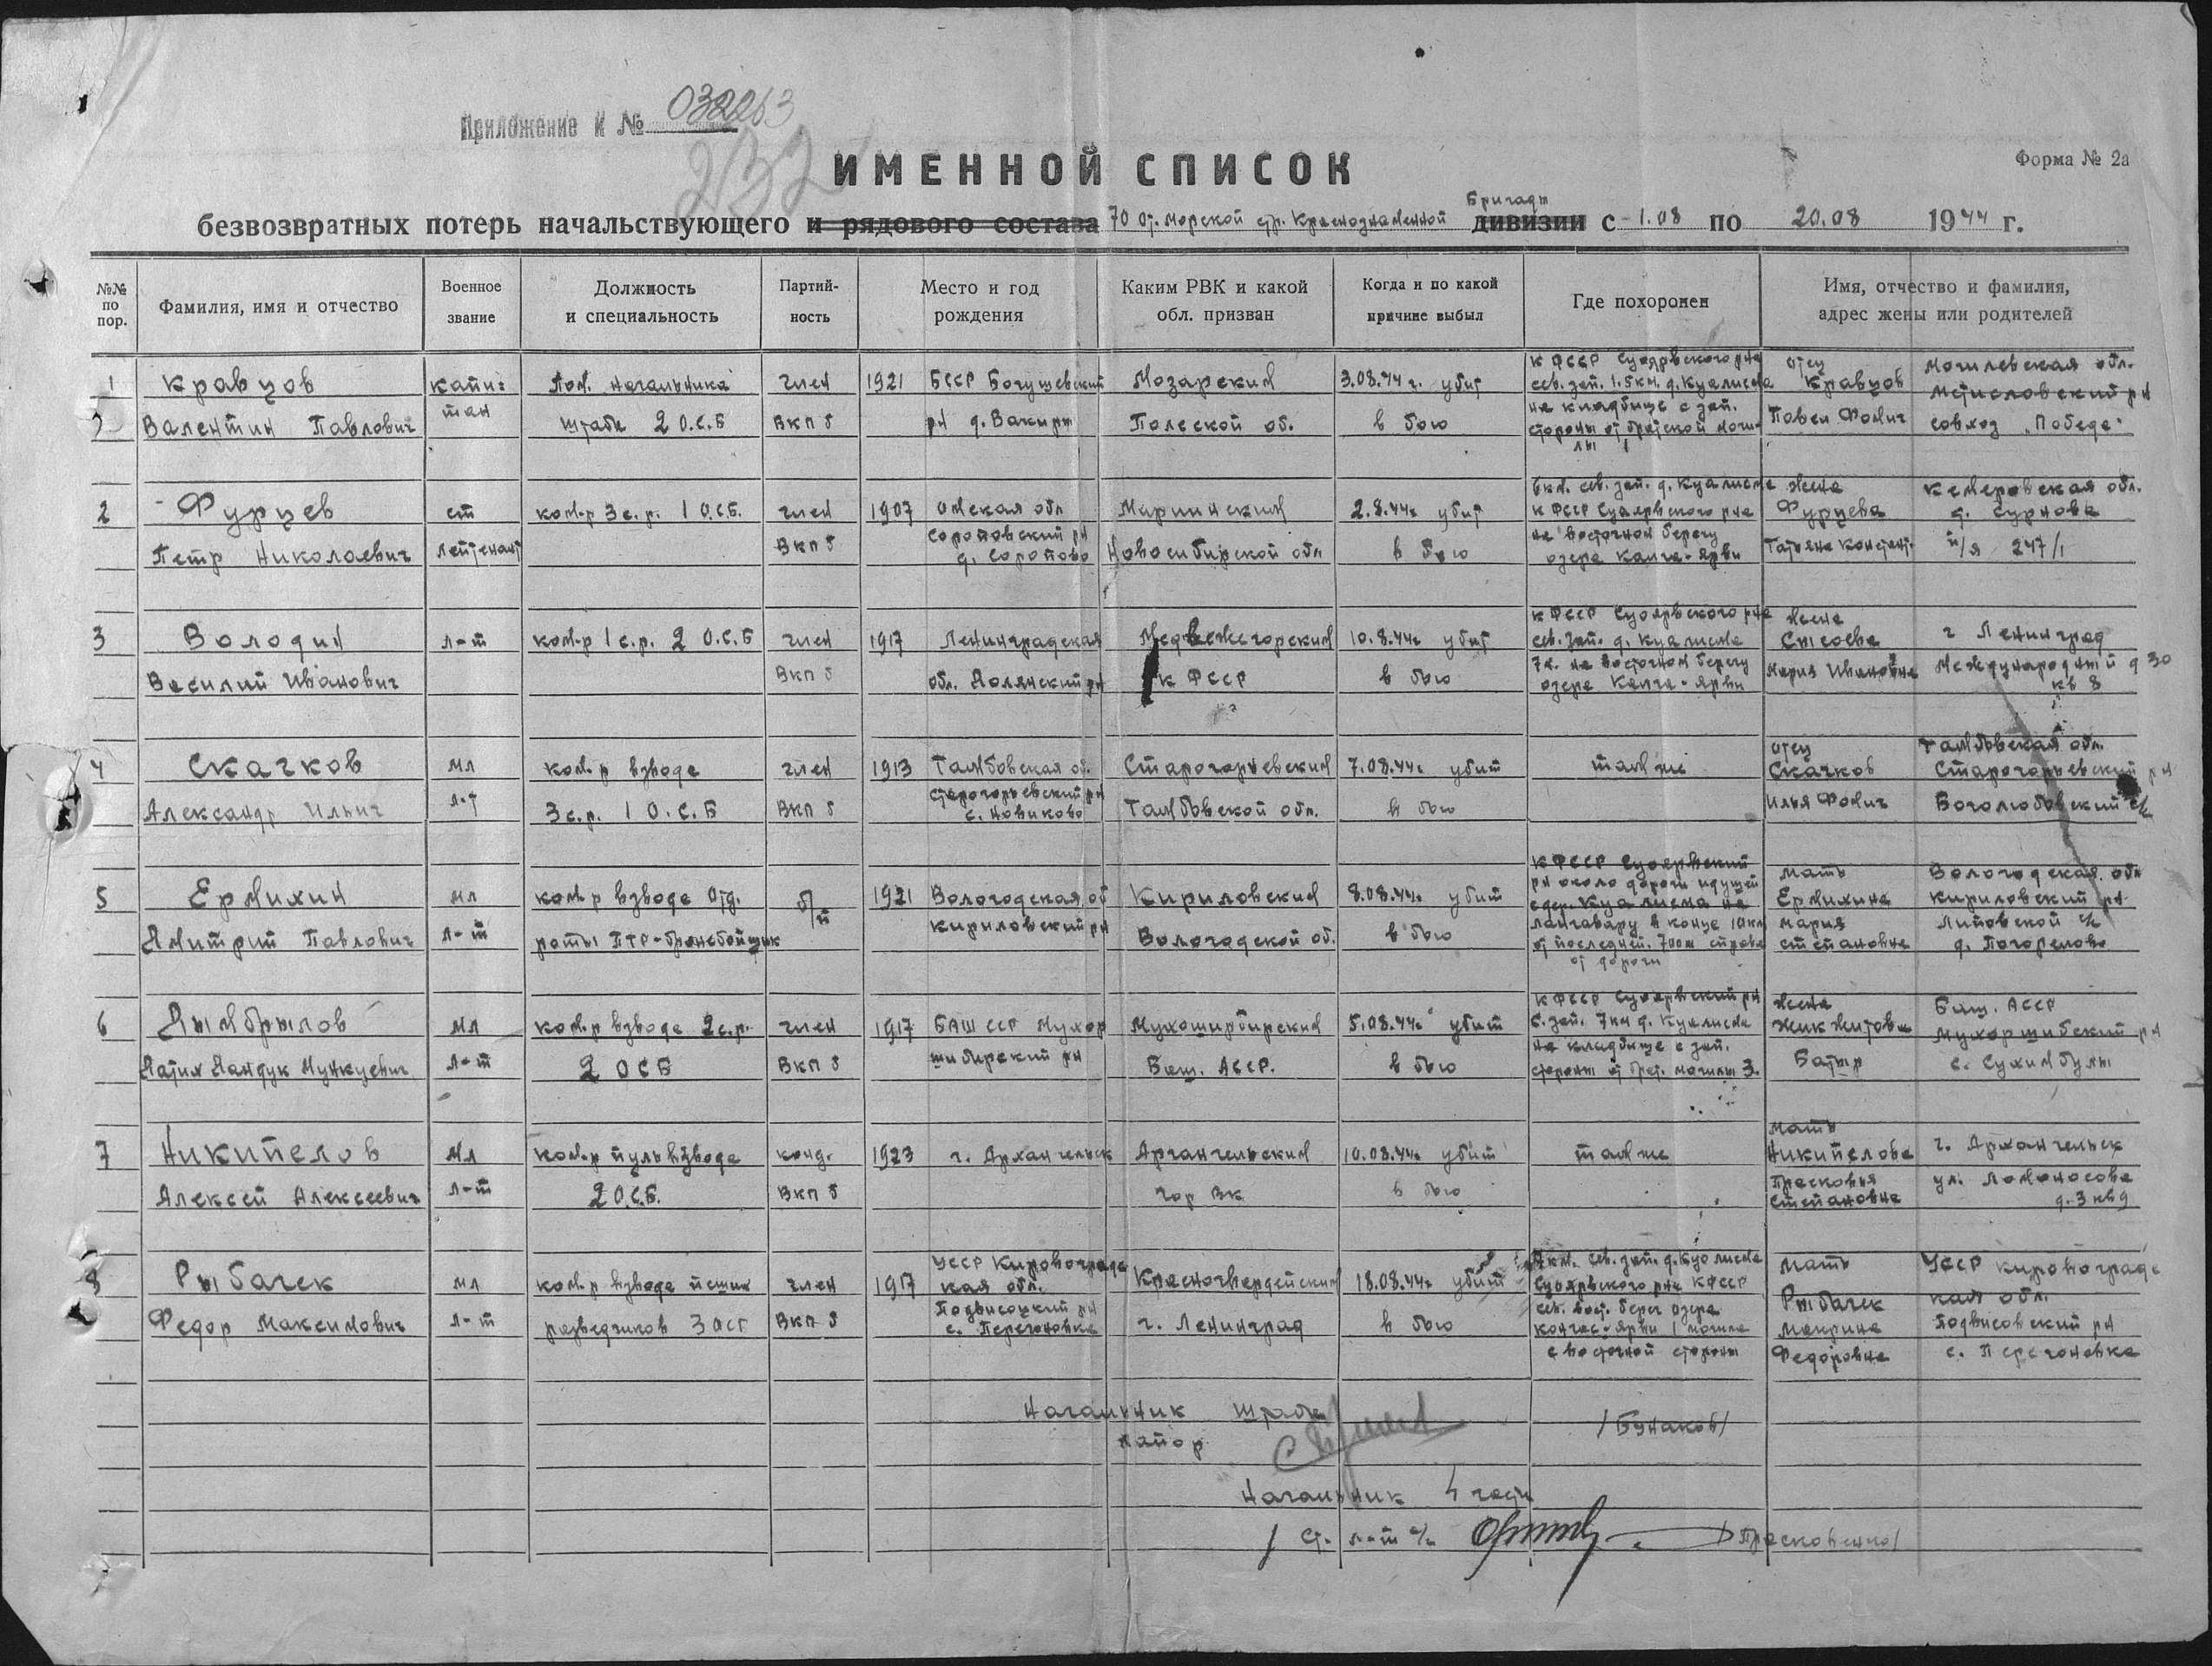 Приложение к № 032263
232
ИМЕННОЙ СПИСОК
Форма № 2а
безвозвратных потерь начальствующего и рядового состава 70 от. морской стр. Краснознаменной дивизии Бригады с 1.08 по 20.08 1944 г.
№№ по пор.
Фамилия, имя и отчество
Военное звание
Должность и специальность
Партийность
Место и год рождения
Каким РВК и какой обл. призван
Когда и по какой причине выбыл
Где похоронен
Имя, отчество и фамилия, адрес жены или родителей
1 Кравцов
Валентин Павлович
капитан
Пом. начальника
штаба 2 О.С.Б
член
ВКП б
1921 БССР Богушевский
рн д.
Мозарским
Полеской об.
3.08.44 г. убит
в бою
К ФССР Суоярвского рна
сев. зап. 1.5 км. д. Куолисма
на кладбище с зап.
стороны от братской моги-
лы 1
отец
Кравцов
Павел Фомич
Могилевская обл.
Мстисловский рн
совхоз "Победа"
2 Фурцев
Петр Николаевич
ст
лейтенант
ком-р 3 с.р. 1 О.С.Б.
член
ВКП б
1907 Омская обл
д.
Мариинским
Новосибирской обл
2.8.44г убит
в бою
6 км. сев. зап. д. Куолисма
К ФССР Суоярвского рна
на восточном берегу
озера Канга-ярви
жена
Фурцева
Татьяна Констант.
Кемеровская обл.
п/я 247/1
3 Володин
Василий Иванович
л-т
ком-р 1 с.р. 2 О.С.Б
член
ВКП б
1917 Ленинградская
обл.
Медвежегорским
К ФССР
10.8.44г убит
в бою
К ФССР Суоярвского рна
сев. зап. д. Куолисма
7 к. на восточном берегу
озера Канга-ярви
жена
Сысоева
Мария Ивановна
г Ленинград
Международный д 30
кв 8
4 Скачков
Александр Ильич
мл
л-т
ком-р взвода
3 с.р. 1 О.С.Б
член
ВКП б
1913 Тамбовская об.
Староюрьевский рн
с. Новиково
Староюрьевским
Тамбовской обл.
7.08.44г убит
в бою
там же
отец
Скачков
Илья Фомич
Тамбовская обл.
Староюрьевский рн
Боголюбовский с/с
5 Ермихин
Дмитрий Павлович
мл
л-т
ком-р взвода отд.
роты ПТР-бронебойщик
б/п
1921 Вологодская об
Кириловский рн
Кириловским
Вологодской об.
8.08.44г убит
в бою
К ФССР Суоярвский
рн около дороги идущей
с дер. Куолисма на
Лонгавару в конце 10 км
от последней. 700 м справа
от дороги
мать
Ермихина
Мария
Степановна
Вологодская обл
Кириловский рн
с/с
д. Погорелово
6 Дымбрылов
Мункуевич
мл
л-т
ком-р взвода 2 с.р.
2 ОСБ
член
ВКП б
1917 БАШ ССР Мухор
шибирский рн
Мухоширбирским
Баш. АССР.
5.08.44г убит
в бою
К ФССР Суоярвский рн
с. зап. 7 км д. Куолисма
на кладбище с зап.
стороны от брат. могилы 3.
жена
Батыр
Баш. АССР
Мухоршибский рн
с.
7 Никипелов
Алексей Алексеевич
мл
л-т
ком-р пульвзвода
2 О.С.Б.
канд.
ВКП б
1923 г. Архангельск
Архангельским
гор ВК
10.08.44г убит
в бою
там же
мать
Никипелова
Прасковья
Степановна
г. Архангельск
ул. Ломоносова
д. 3 кв 9
8 Рыбачек
Федор Максимович
мл
л-т
ком-р взвода пеших
разведчиков 3 ОСБ
член
ВКП б
1917 УССР Кировоградс
кая обл.
Подвисоцкий рн
с. Перегоновка
Красногвардейским
г. Ленинград
18.08.44г убит
в бою
км. сев. зап. д. Куолисма
Суоярвского рна КФССР
сев. вост. берег озера
Конгас-ярви 1 могила
с восточной стороны
мать
Рыбачек
Марина
Федоровна
УССР Кировоградс
кая обл.
Подвисовский рн
с. Перегоновка
Начальник штаба
майор
/Бунаков/
Начальник 4 части
/ ст. л-т а/с
/Просковенко/